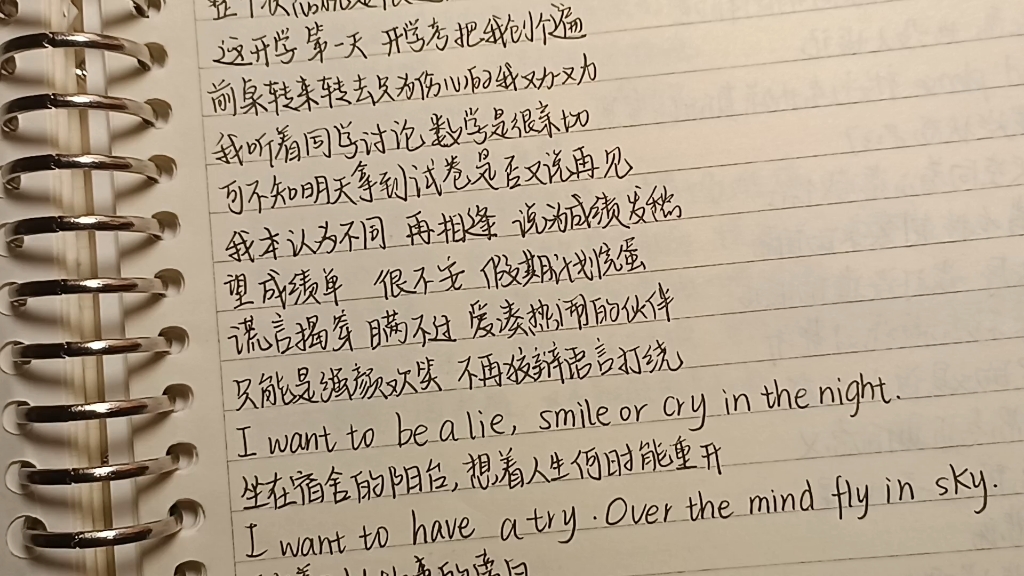 这开学第一天 开学考把我创个遍
前桌转来转去只为伤心的我又力又力
我听着同学讨论数学是很亲切
可不知明天拿到试卷是否又说再见
我本认为不同 再相逢 说为成绩发愁
望成绩单 很不妥 假期计划完蛋
谎言揭穿 瞒不过 爱凑热闹的伙伴
只能是强颜欢笑 不再狡辩语言打绕
I want to be a lie, smile or cry in the night.
坐在宿舍的阳台,想着人生何时能重开
I want to have a try. Over the mind fly in sky.